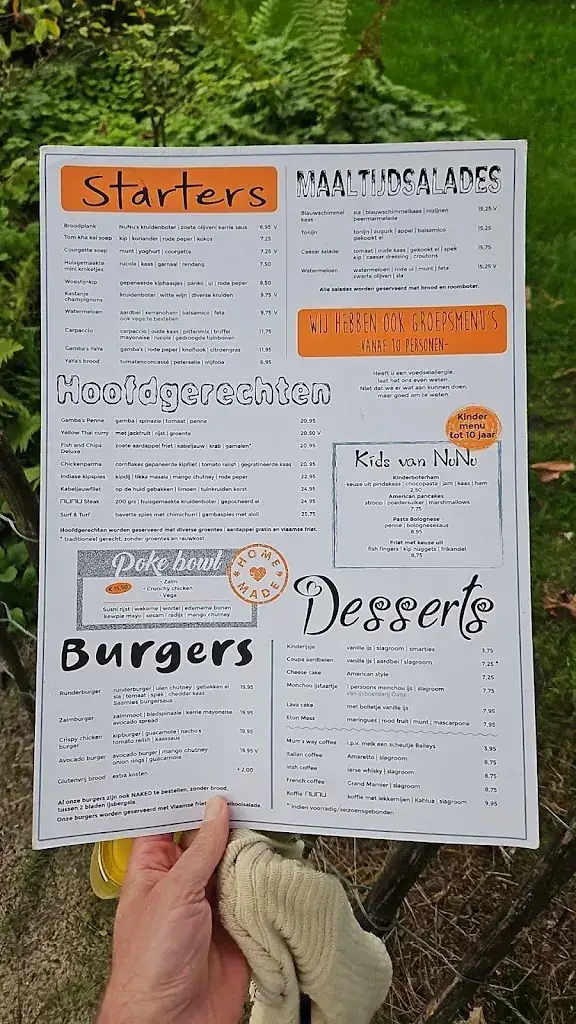 Starters
Broodplank NuNu's kruidenboter | zoete olijven| kerrie saus 6,95 V
Tom kha kai soep kip | koriander | rode peper | kokos 7,25
Courgette soep munt | yoghurt | courgette 7,25 V
Huisgemaakte mini kroketjes rucola | kaas | garnaal | rendang 7,50
Woestijnkip gepaneerde kiphaasjes | panko | ui | rode peper 9,50
Kastanje champignons kruidenboter | witte wijn | diverse kruiden 9,75 V
Watermeloen aardbei | serranoham | balsamico | feta 9,75
ook vega te bestellen
Carpaccio carpaccio | oude kaas | pittenmix | truffel 11,75
mayonaise | rucola | gedroogde tuinbonen
Gamba's YaYa gamba's | rode peper | knoflook | citroengras 11,95
YaYa's brood tomatenconcassé | peterselie | olijfolie 6,95
MAALTIJDSALADES
Blauwschimmel kaas sla | blauwschimmelkaas | rozijnen 15,25 V
peermarmelade
Tonijn tonijn | augurk | appel | balsamico 15,25
gekookt ei
Caesar salade tomaat | oude kaas | gekookt ei | spek 15,75
kip | caesar dressing | croutons
Watermeloen watermeloen | rode ui | munt | feta 15,25 V
zwarte olijven | sla
Alle salades worden geserveerd met brood en roomboter.
WIJ HEBBEN OOK GROEPSMENU'S
-VANAF 10 PERSONEN-
Heeft u een voedselallergie,
laat het ons even weten.
Niet dat we er wat aan kunnen doen,
maar goed om te weten
Hoofdgerechten
Gamba's Penne gamba | spinazie | tomaat | penne 20,95
Yellow Thai curry met jackfruit | rijst | groente 20,50 V
Fish and Chips Deluxe zoete aardappel friet | kabeljauw | krab | garnalen* 20,95
Chickenparma cornflakes gepaneerde kipfilet | tomato relish | gegratineerde kaas 20,95
Indiase kipspies kipdij | tikka masala | mango chutney | rode peper 22,95
Kabeljauwfilet op de huid gebakken | limoen | tuinkruiden korst 24,95
NUNU Steak 200 grs | huisgemaakte kruidenboter | gepocheerd ei 24,95
Surf & Turf bavette spies met chimichurri | gambaspies met aioli 25,75
Hoofdgerechten worden geserveerd met diverse groentes | aardappel gratin en vlaamse friet.
* traditioneel gerecht; zonder groentes en rauwkost
Kinder
menu
tot 10 jaar
Kids van NuNu
Kinderboterham
keuze uit pindakaas | chocopasta | jam | kaas | ham
2,50
American pancakes
stroop | poedersuiker | marshmallows
7,75
Pasta Bolognese
penne | bolognesesaus
8,95
Friet met keuze uit
fish fingers | kip nuggets | frikandel
8,75
Poke bowl
€15,50
- Zalm
- Crunchy chicken
- Vega
Sushi rijst | wakame | wortel | edamame bonen
kewpie mayo | sesam | radijs | mango chutney
HOME MADE
Burgers
Runderburger runderburger | uien chutney | gebakken ei 19,95
sla | tomaat | spek | cheddar kaas
Saamies burgersaus
Zalmburger zalmmoot | bladspinazie | kerrie mayonaise 19,95
avocado spread
Crispy chicken burger kipburger | guacamole | nacho's 19,95
tomato relish | kaassaus
Avocado burger avocado burger | mango chutney 19,95 V
onion rings | guacamole
Glutenvrij brood extra kosten + 2,00
Al onze burgers zijn ook NAKED te bestellen, zonder brood,
tussen 2 bladen ijsbergsla.
Onze burgers worden geserveerd met Vlaamse friet
Desserts
Kinderijsje vanille ijs | slagroom | smarties 3,75
Coupe aardbeien vanille ijs | aardbei | slagroom 7,25 *
Cheese cake American style 7,25
Monchou ijstaartje 1 persoons monchou ijs | slagroom 7,75
van ijsboerderij Oans
Lava cake met bolletje vanille ijs 7,95
Eton Mess meringues | rood fruit | munt | mascarpone 7,95
Mum's way coffee i.p.v. melk een scheutje Baileys 5,95
Italian coffee Amaretto | slagroom 8,75
Irish coffee Ierse whisky | slagroom 8,75
French coffee Grand Marnier | slagroom 8,75
Koffie NUNU koffie met lekkernijen | Kahlua | slagroom 9,95
* indien voorradig/seizoensgebonden